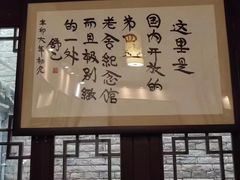 这里是
国内开放的
第一个
老舍纪念馆
而且极别緻
的一处
舒乙